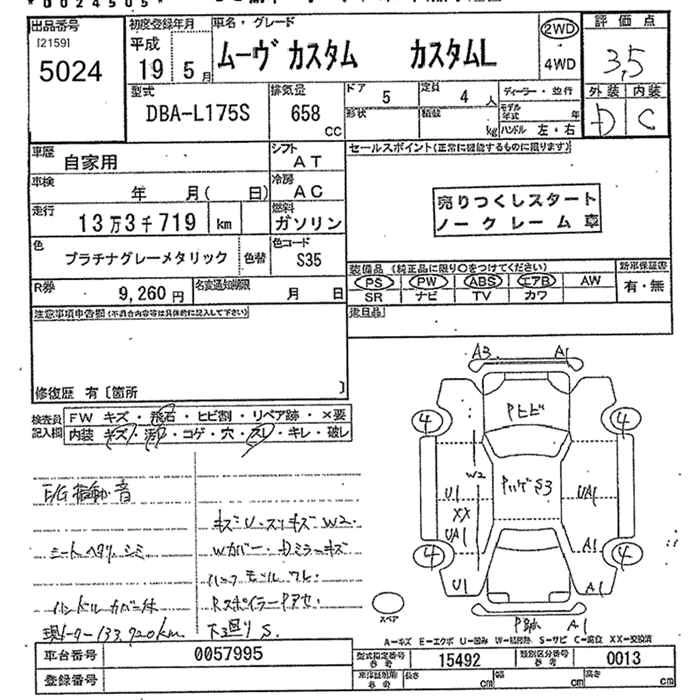 出品番号
[2159]
5024
初度登録年月
平成
19 5月
車名・グレード
ムーヴ カスタム カスタムL
2WD
4WD
評価点
3,5
外装 内装
D C
型式
DBA-L175S
排気量
658
CC
ドア
5
定員
4 人
形状
積載
kg
ディーラー・並行
モデル年式 年
ハンドル 左・右
車歴
自家用
シフト
AT
車検
年 月( 日)
冷房
AC
走行
13万3千719 km
燃料
ガソリン
色
プラチナグレーメタリック
色替
色コード
S35
R券
9,260 円
名変通知期限
月 日
セールスポイント(正常に機能するものに限ります)
売りつくしスタート
ノークレーム車
装備品 (純正品に限り○をつけてください)
新車保証書
PS PW ABS エアB AW
有・無
SR ナビ TV カワ
注意事項申告欄(不具合内容等は具体的に記入して下さい)
修復歴 有〔箇所 〕
検査員記入欄
FW キズ・飛石・ヒビ割・リペア跡・×要
内装 キズ・汚れ・コゲ・穴・スレ・キレ・破レ
音
キズU・スリキズ W2
シートヘタリ、シミ
Wカバー・
ハンドルカバー
133,720km
下廻り S.
A3 A1
Pヒビ
4 4
W2
S3
U1
XX
UA1
UA1
A1
4 4
U1
A1
スペア
A1
A-キズ E-エクボ U-凹み W-補修跡 S-サビ C-腐食 XX-交換済
車台番号
0057995
型式指定番号
参考
15492
類別区分番号
参考
0013
登録番号
参考
長さ cm
幅 cm
高さ cm